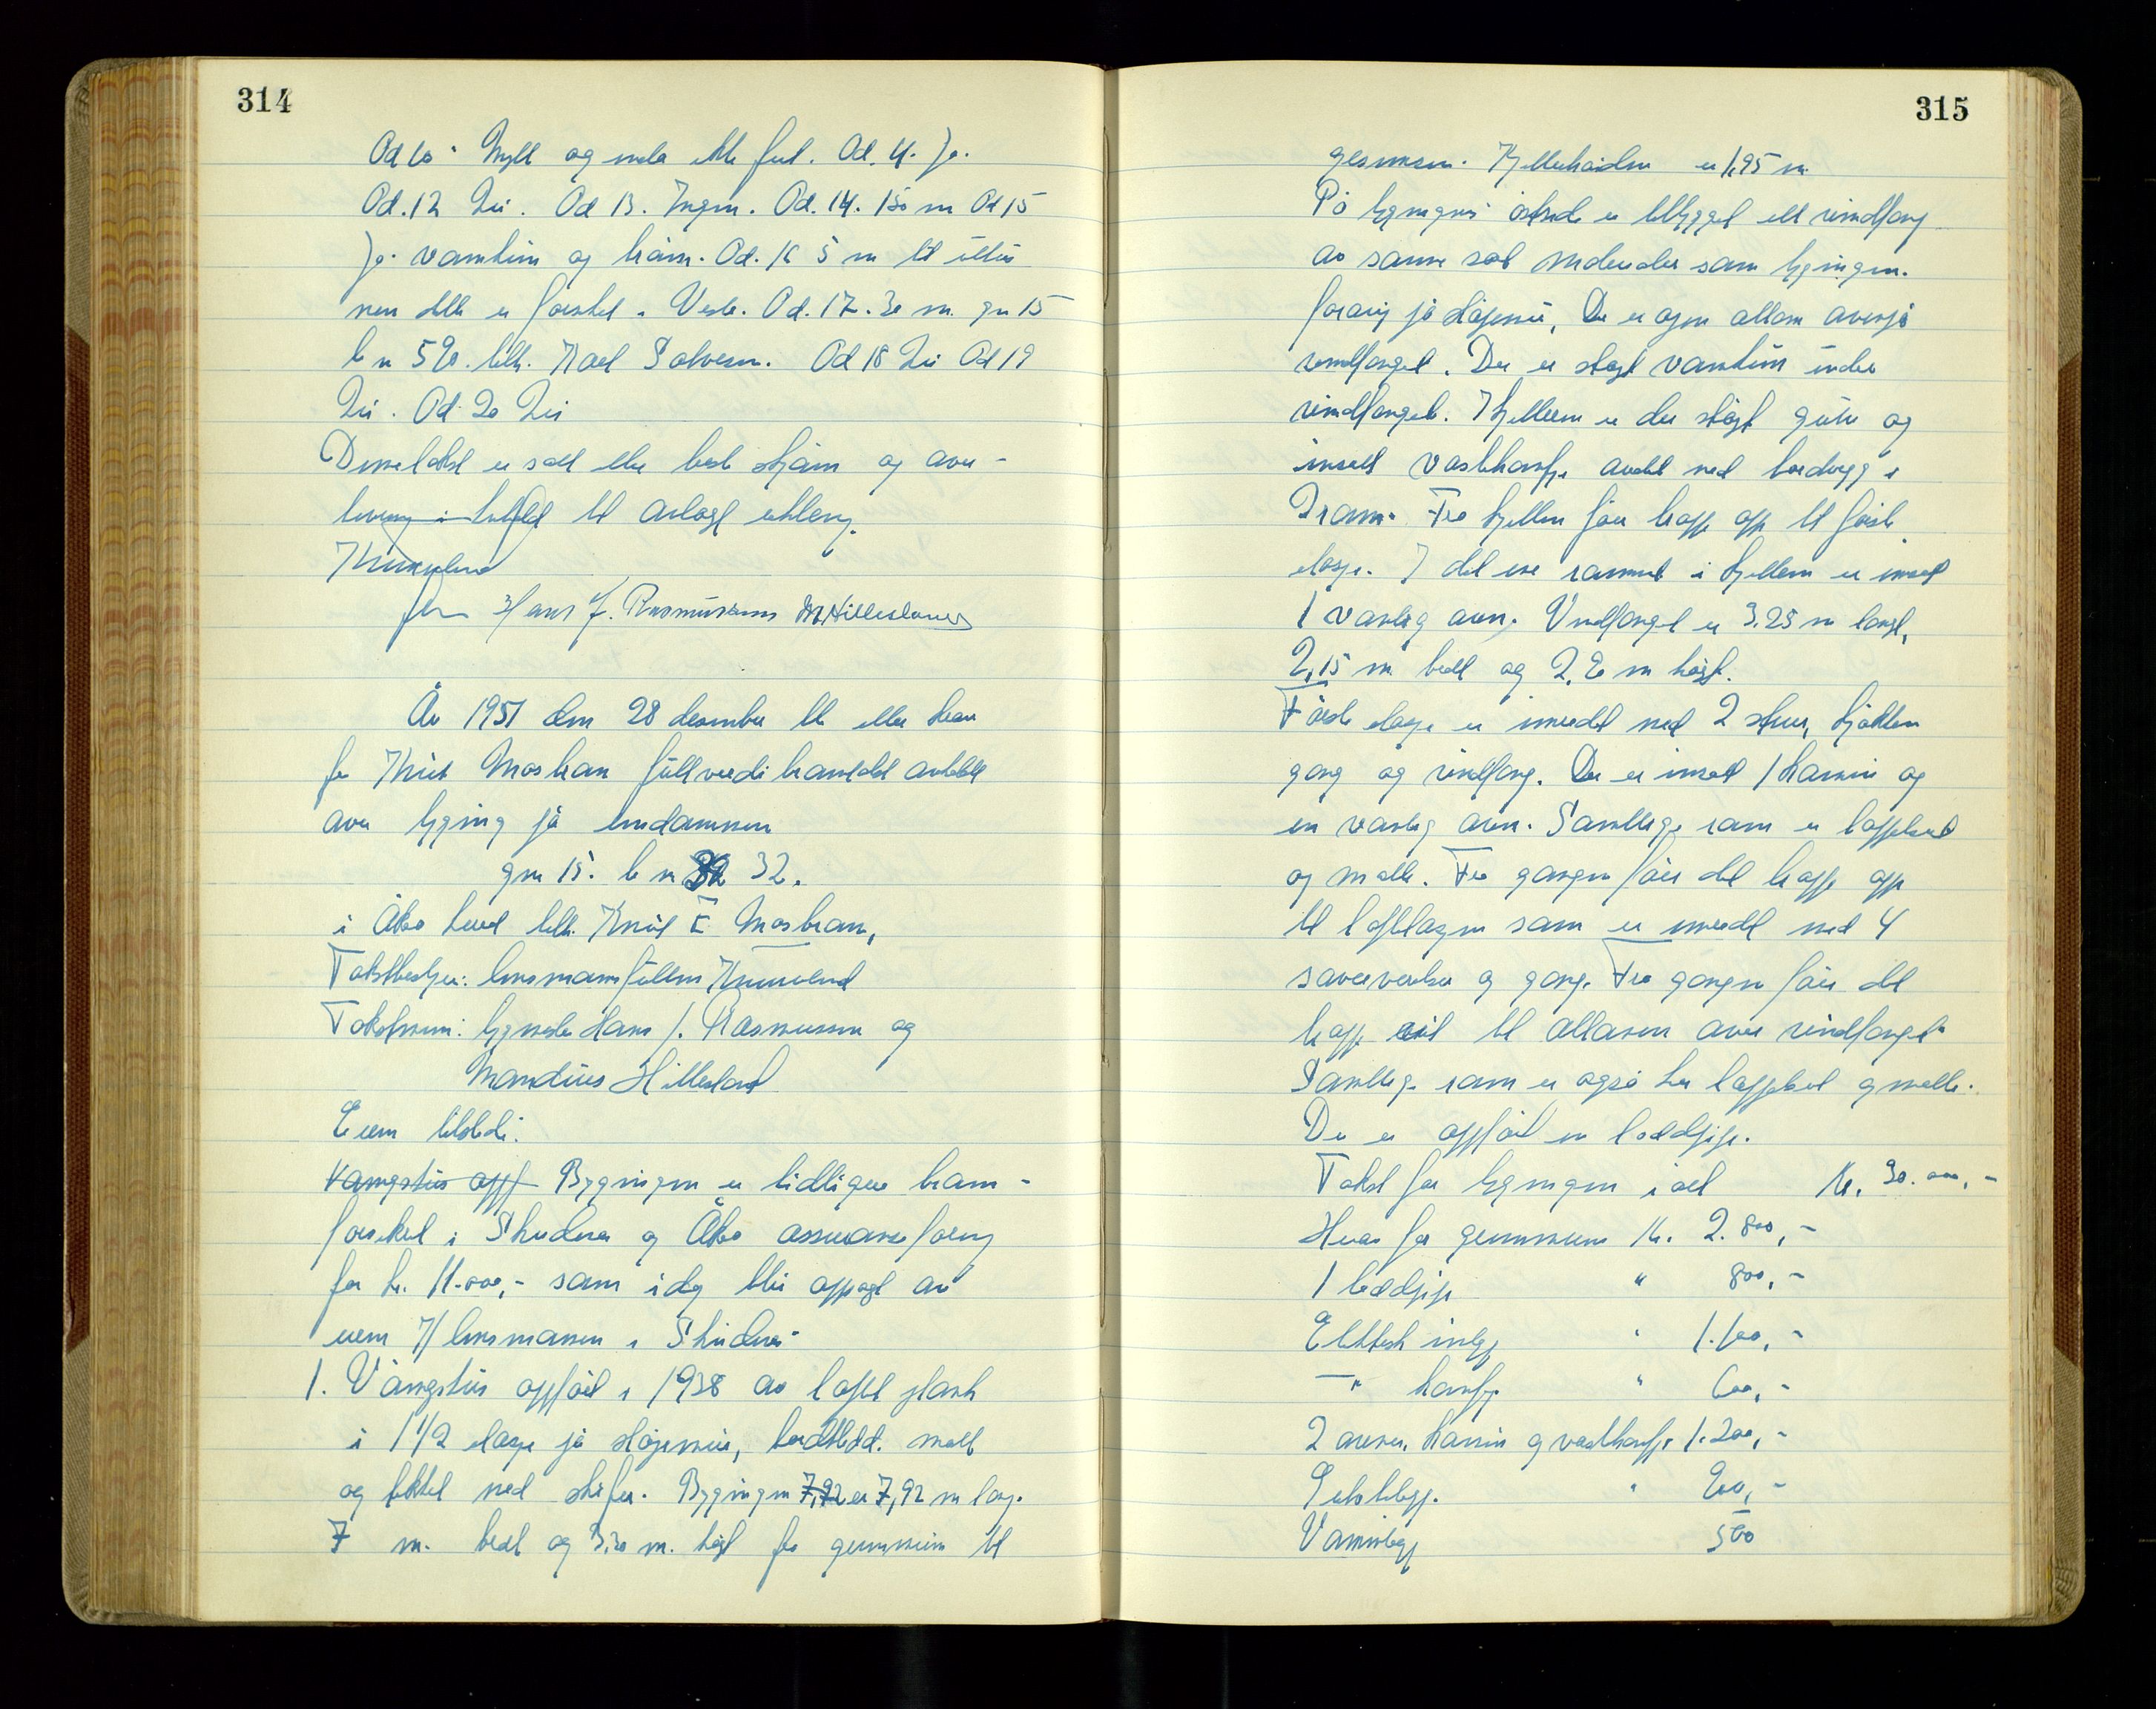 314
Od 10. Mykk og mola ikke fest. Od. 11. Ja.
Od. 12 Nei. Od 13. Ingen. Od. 14. 150 m Od 15
Ja. vanntun og brönn. Od. 16 5 m til uthus
men dette er forsikret. Veske. Od. 17. 30 m. gn 15
b n 5 tilh. Karl Salvesen. Od 18 Nei Od 19
Nei. Od. 20 Nei
Denne takst er satt etter beste skjönn og over-
bevisning i henhold til avlagt erklæring.
Hans J. Rasmussen M. Hillesland
År 1951 den 28 desember ble etter krav
fra Knut Mosbron fullverdi branntakst avholdt
over bygning på eiendommen
gn 15. b n 32.
i Åkra herred tilh. Knut E Mosbron,
Takstbestyrer: lensmannsfullm.
Takstmenn: byggmester Hans J. Rasmussen og
Mandius Hillesland
Eieren tilstede.
Vaanghus oppf Bygningen er tidligere brann-
forsikret i Skudenes og Åkra assuranseforening
for kr. 11.000,- som idag blir oppsagt av
eieren til lensmannen i Skudenes
1. Våningshus oppfört i 1938 av laftet plank
i 1 1/2 etasje på stöpemur, bordkledd. malt
og tekket med skifer. Bygningen 7,92 er 7,92 m lang.
7 m. bred og 3.30 m. högt fra grunnmuren til
315
gesimsen. Kjellerhöiden er 1,95 m
På bygningens östside er tilbygget ett vindfang
av samme slag materialer som bygningen.
forövrig på stöpemur, Der er open altan over på
vindfanget. Der er stöpt vanntun under
vindfanget. I kjelleren er der stöpt gulv og
innsatt vaskekomfyr avdelt med bordvegg i
2 rom. Fra kjelleren förer trapp opp til förste
etasje. I det ene rommet i kjelleren er innsatt
1 vanlig ovn. Vindfanget er 3.25 m langt,
2,15 m bredt og 2,20 m högt.
Förste etasje er innredet med 2 stuer, kjökken
gang og vindfang. Der er innsatt 1 kamin og
en vanlig ovn. Samtlige rom er tapetsert
og malte. Fra gangen förer det trapp opp
til loftetasjen som er innredet med 4
soveværelser og gang. Fra gangen förer det
trapp ut til altanen over vindfanget
Samtlige rom er også her tapetsert og malte.
Der er oppfört en teglpipe.
Takst for bygningen i alt Kr. 30.000,-
Herav for grunnmuren Kr. 2.800,-
1 teglpipe " 800,-
Elektrisk innlegg " 1.100,-
-"- komfyr " 600,-
2 ovner, kamin og vaskekomfyr 1.200,-
200,-
Vanninnlegg 500